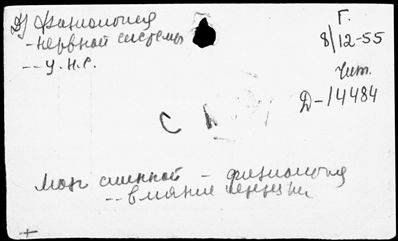 Д) Физиология
- нервной системы
-- У.Н.С.
Г.
8/12-55
Чит.
Д-14484
С
Мозг спинной - физиология
-- влияние